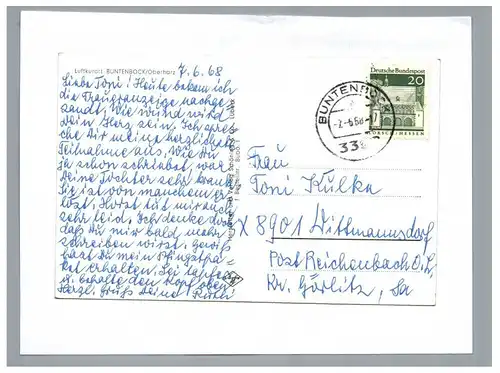 Luftkurort BUNTENBOCK/Oberharz
7.6.68
Liebe Toni! Heute bekam ich
die Traueranzeige nachge
sandt. Wie wund wird
Dein Herz sein. Ich spre
che Dir meine herzlichste
Teilnahme aus. Wie Du
ja schon schriebst, war
Deine Tochter sehr krank.
Sie ist von manchem er
löst. Horst tut mir auch
sehr leid. Ich denke doch
daß Du mir bald mehr
schreiben wirst, gewiß
hast Du mein Pfingstpa=
ket erhalten. Sei tapfer
u. behalte den Kopf oben
Herzl. Gruß Deine
Deutsche Bundespost
20
BUNTENBOCK
-7.-6.68-
Frau
Toni Kulka
X 8901 Dittmannsdorf
Post Reichenbach O.L.
Kr. Görlitz, Sa